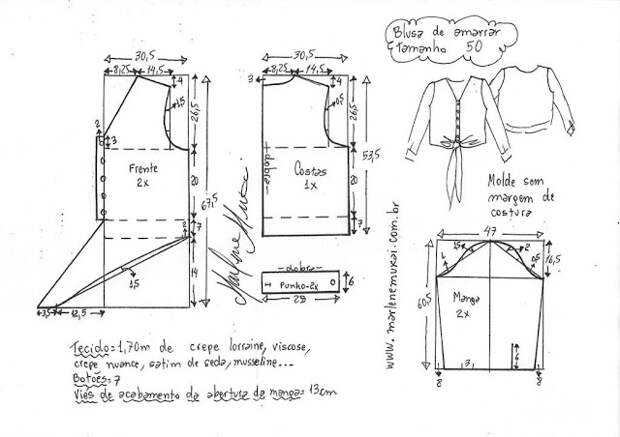 Blusa de amarrar
Tamanho 50
30,5
8,25 14,5
4
1,5
26,5
2
3
Frente
2x
20
67,5
2
7
14
1,5
3,5 12,5
30,5
8,25 14,5
3
4
0,5
26,5
dobra
Costas
1x
20
53,5
7
dobra
Punho-2x
6
28
Marlene Mukai
www.marlenemukai.com.br
Molde sem
margem de
costura
47
1,5
2
1
0,5
16,5
60,5
Manga
2x
6
8
8
Tecido=1,70m de crepe lorraine, viscose,
crepe nuance, satim de seda, musseline...
Botões=7
Viés de acabamento da abertura da manga= 13cm